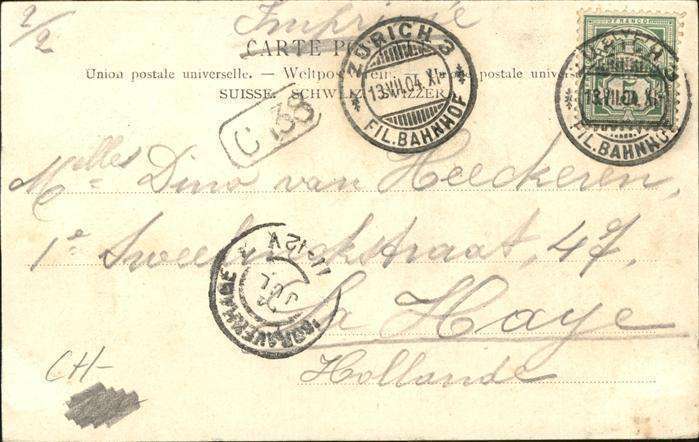 2/2
Imprimé
CARTE PO
Union postale universelle. — Weltpostverein. — postale univers
SUISSE. SCHWEIZ. SVIZZERA.
ZÜRICH 3
13.VII.04. XI-
FIL. BAHNHOF
FRANCO
13.VII.04. XI-
FIL. BAHNHOF
C 38
Melles Dino van Heeckeren,
1e Sweelinckstraat, 47,
La Haye
Hollande
'S GRAVENHAGE
JUL
11-12V
CH-